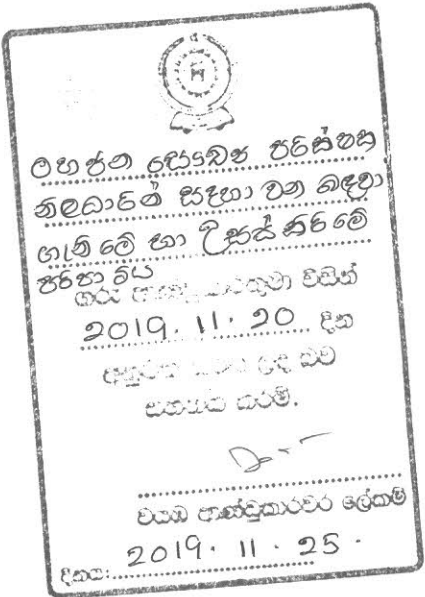 මහජන සෞඛ්‍ය පරීක්ෂක
නිලධාරීන් සඳහා වන බඳවා
ගැනීමේ හා උසස් කිරීමේ
පරිපාටිය
ගරු විසින්
2019. 11. 20 දින
බව
කරමි.
වයඹ ආණ්ඩුකාරවර ලේකම්
දිනය: 2019. 11. 25.